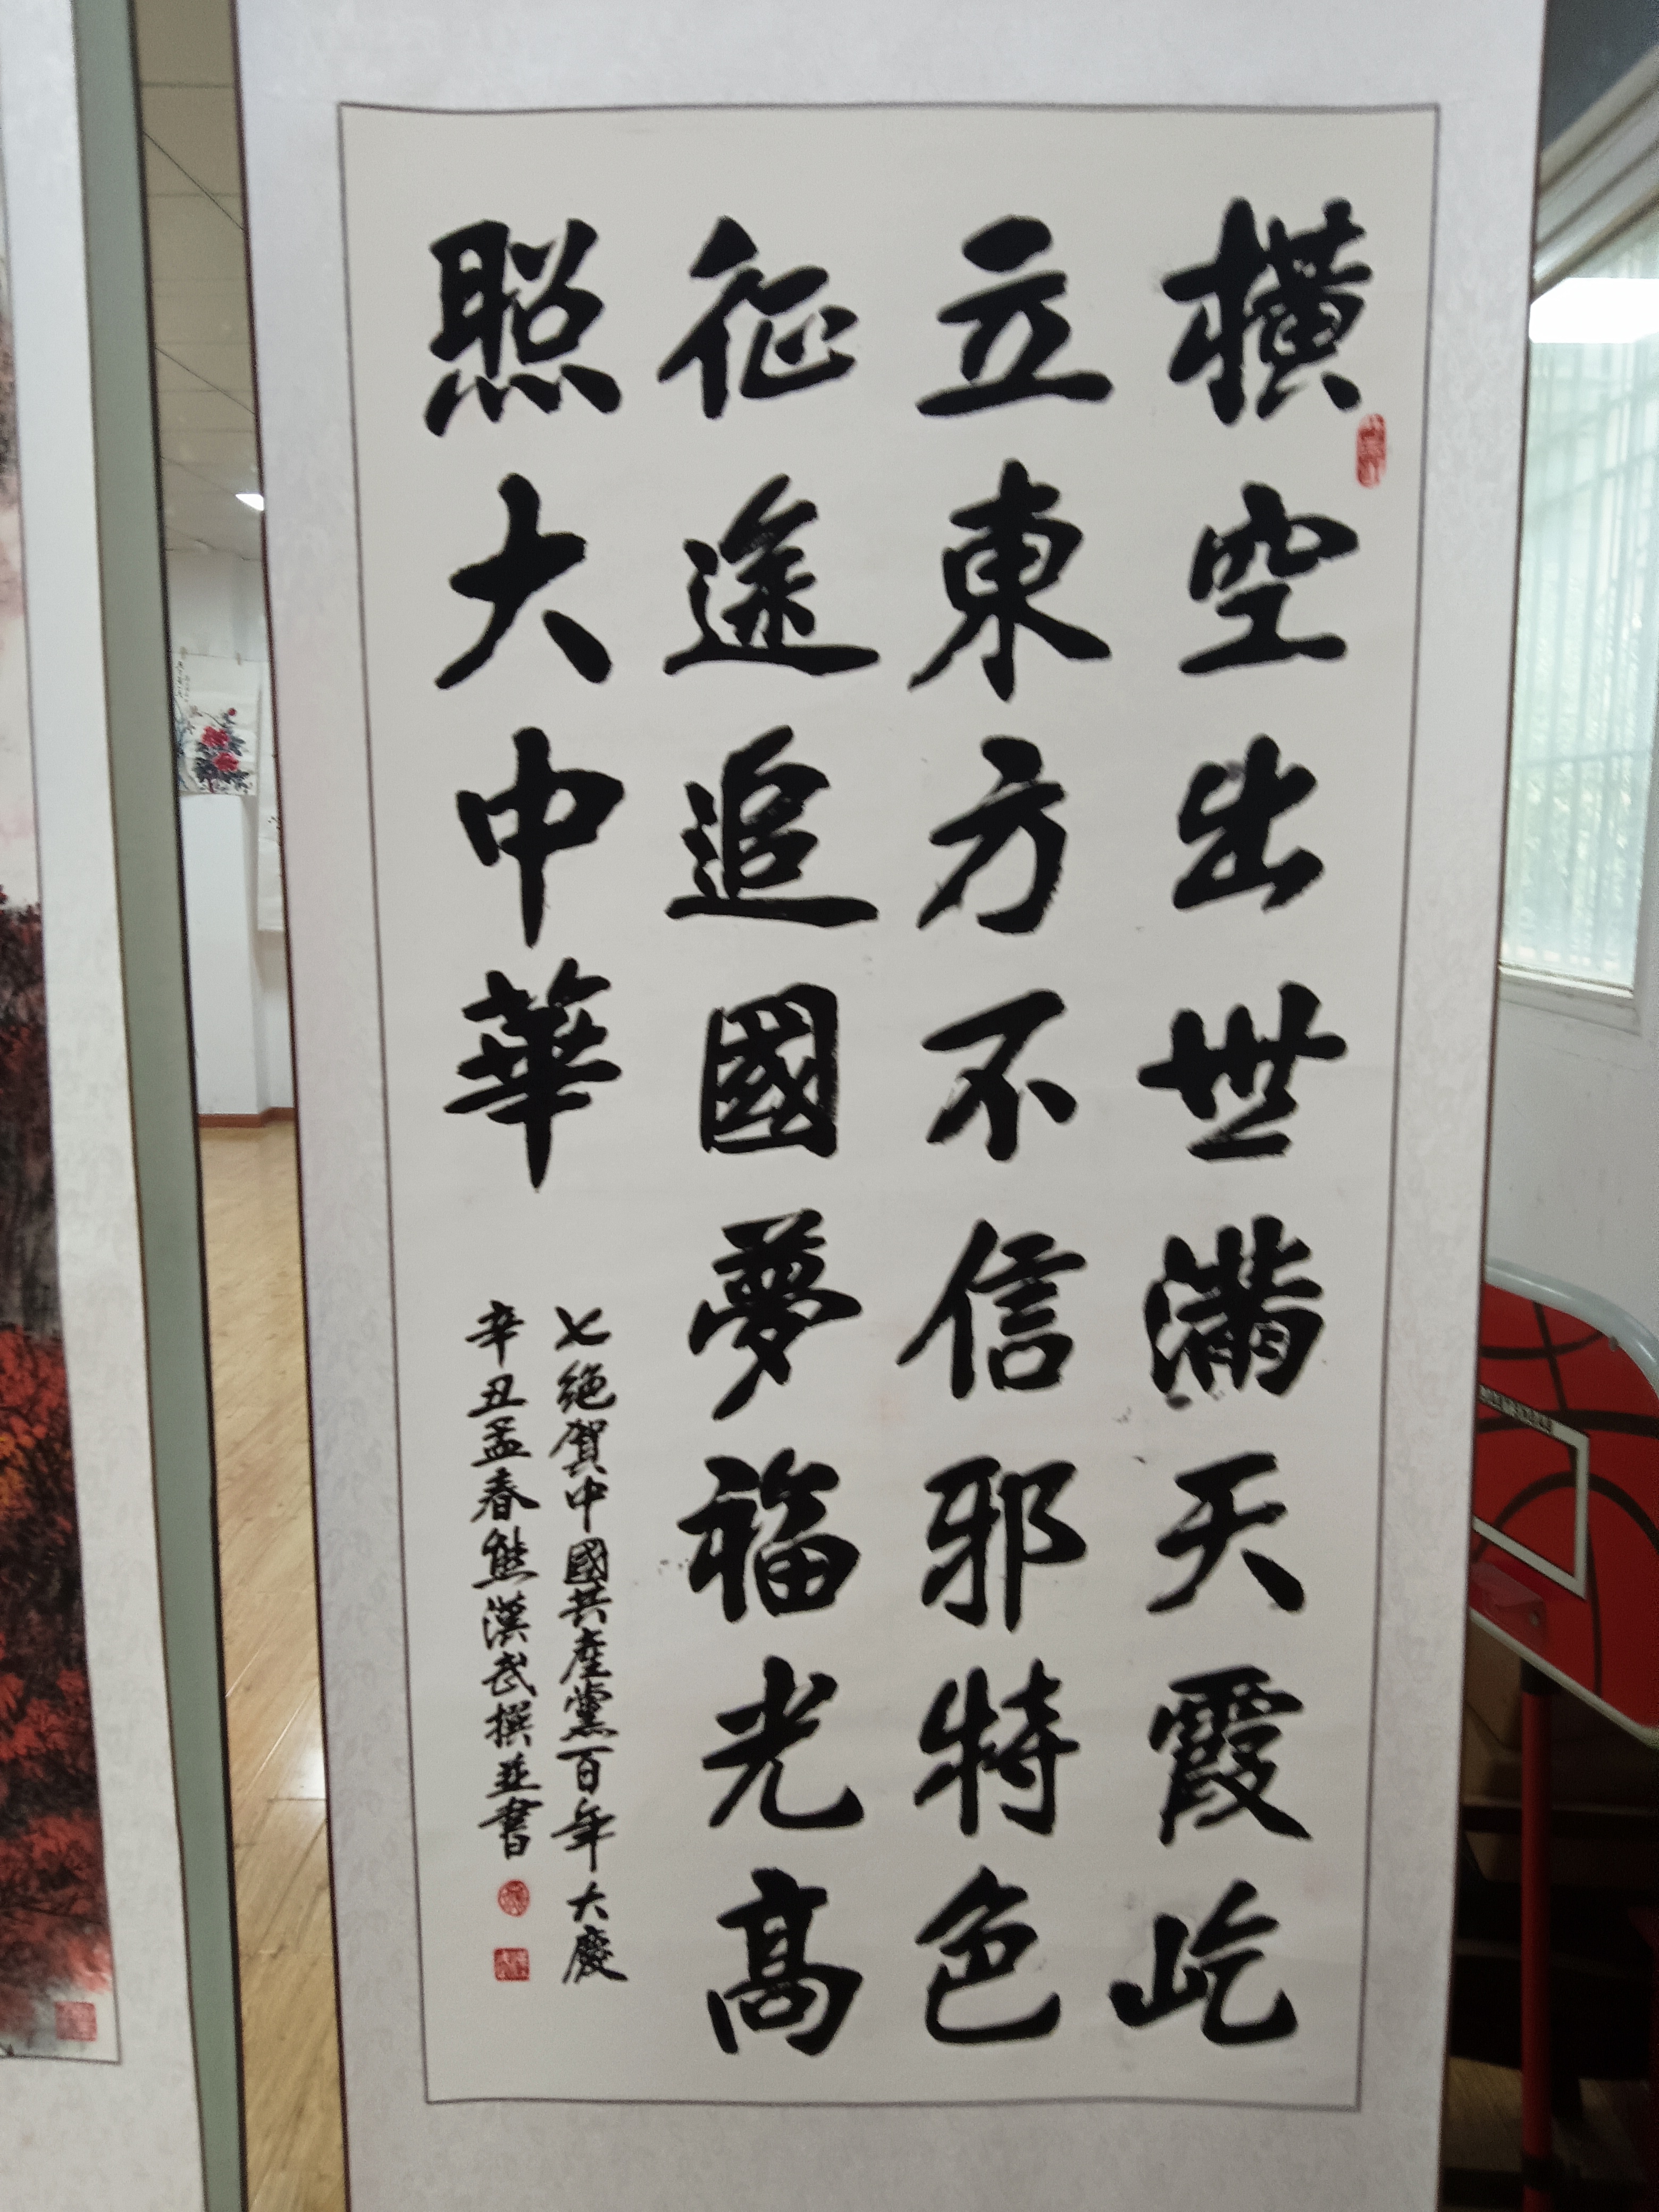 橫空出世滿天霞屹
立東方不信邪特色
征途追國夢福光高
照大中華
七絕賀中國共產黨百年大慶
辛丑孟春熊漢武撰並書